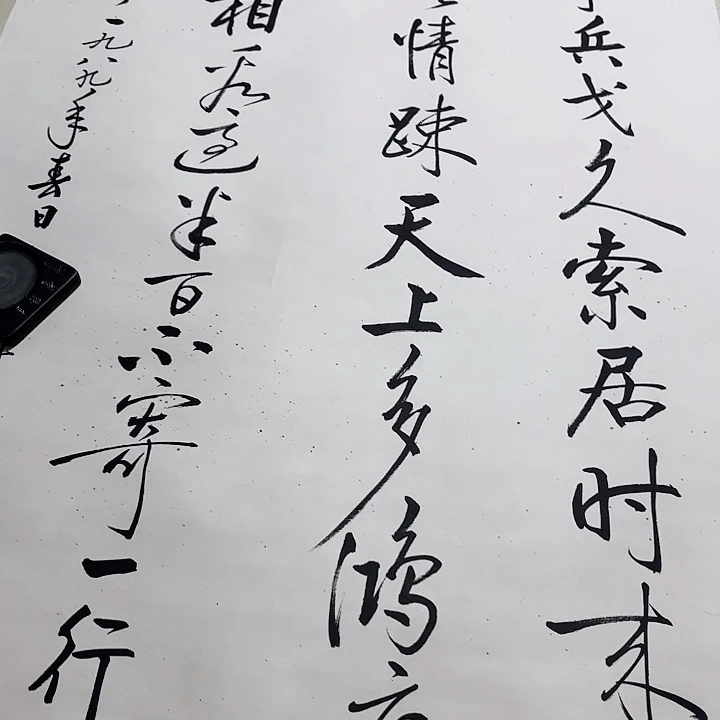 兵戈久索居时来
情踈天上多鸿
相看過半百不寄一行
一九八九年春日